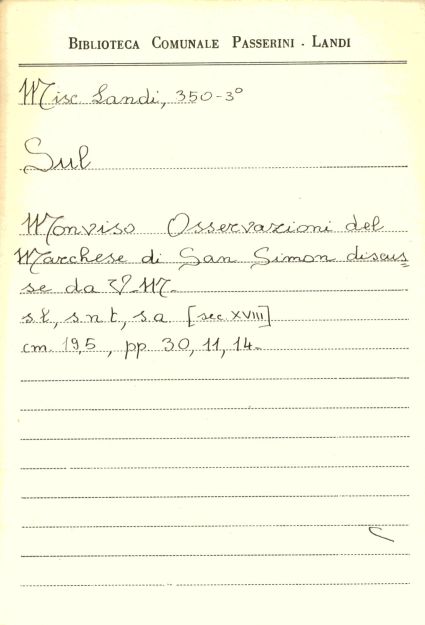 BIBLIOTECA COMUNALE PASSERINI - LANDI
Misc. Landi, 350-3°
Sul
Monviso Osservazioni del
Marchese di San Simon discus=
se da V.M.
s.l, s.n.t, s.a. [sec XVIII]
cm. 19,5, pp. 30, 11, 14.